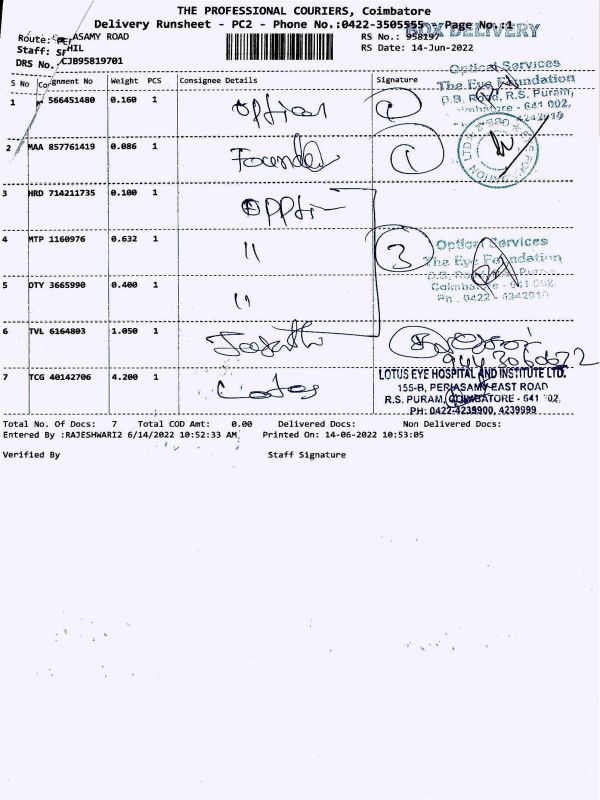 THE PROFESSIONAL COURIERS, Coimbatore
Delivery Runsheet - PC2 - Phone No.:0422-3505555 Page No.:1
BOX DELIVERY
Route: ASAMY ROAD
RS No.: 958197
Staff: HIL
RS Date: 14-Jun-2022
DRS No. CJB95819701
S No Consignment No Weight PCS Consignee Details Signature
Optical Services
The Eye Foundation
D.B. Road, R.S. Puram,
641 002,
4242010
1 566451480 0.160 1 Optical 1
2 MAA 857761419 0.086 1 Founder 1
3 HRD 714211735 0.100 1
4 MTP 1160976 0.632 1 " 3
Optical Services
The Eye Foundation
5 OTY 3665990 0.400 1 "
641 002.
Ph . 0422 - 4342010
6 TVL 6164803 1.050 1
7 TCG 40142706 4.200 1 Lotus
LOTUS EYE HOSPITAL AND INSTITUTE LTD.
155-B, PERIASAMY EAST ROAD
R.S. PURAM, COIMBATORE - 641 002,
PH: 0422-4239900, 4239999
Total No. Of Docs: 7 Total COD Amt: 0.00 Delivered Docs: Non Delivered Docs:
Entered By :RAJESHWARI2 6/14/2022 10:52:33 AM Printed On: 14-06-2022 10:53:05
Verified By Staff Signature